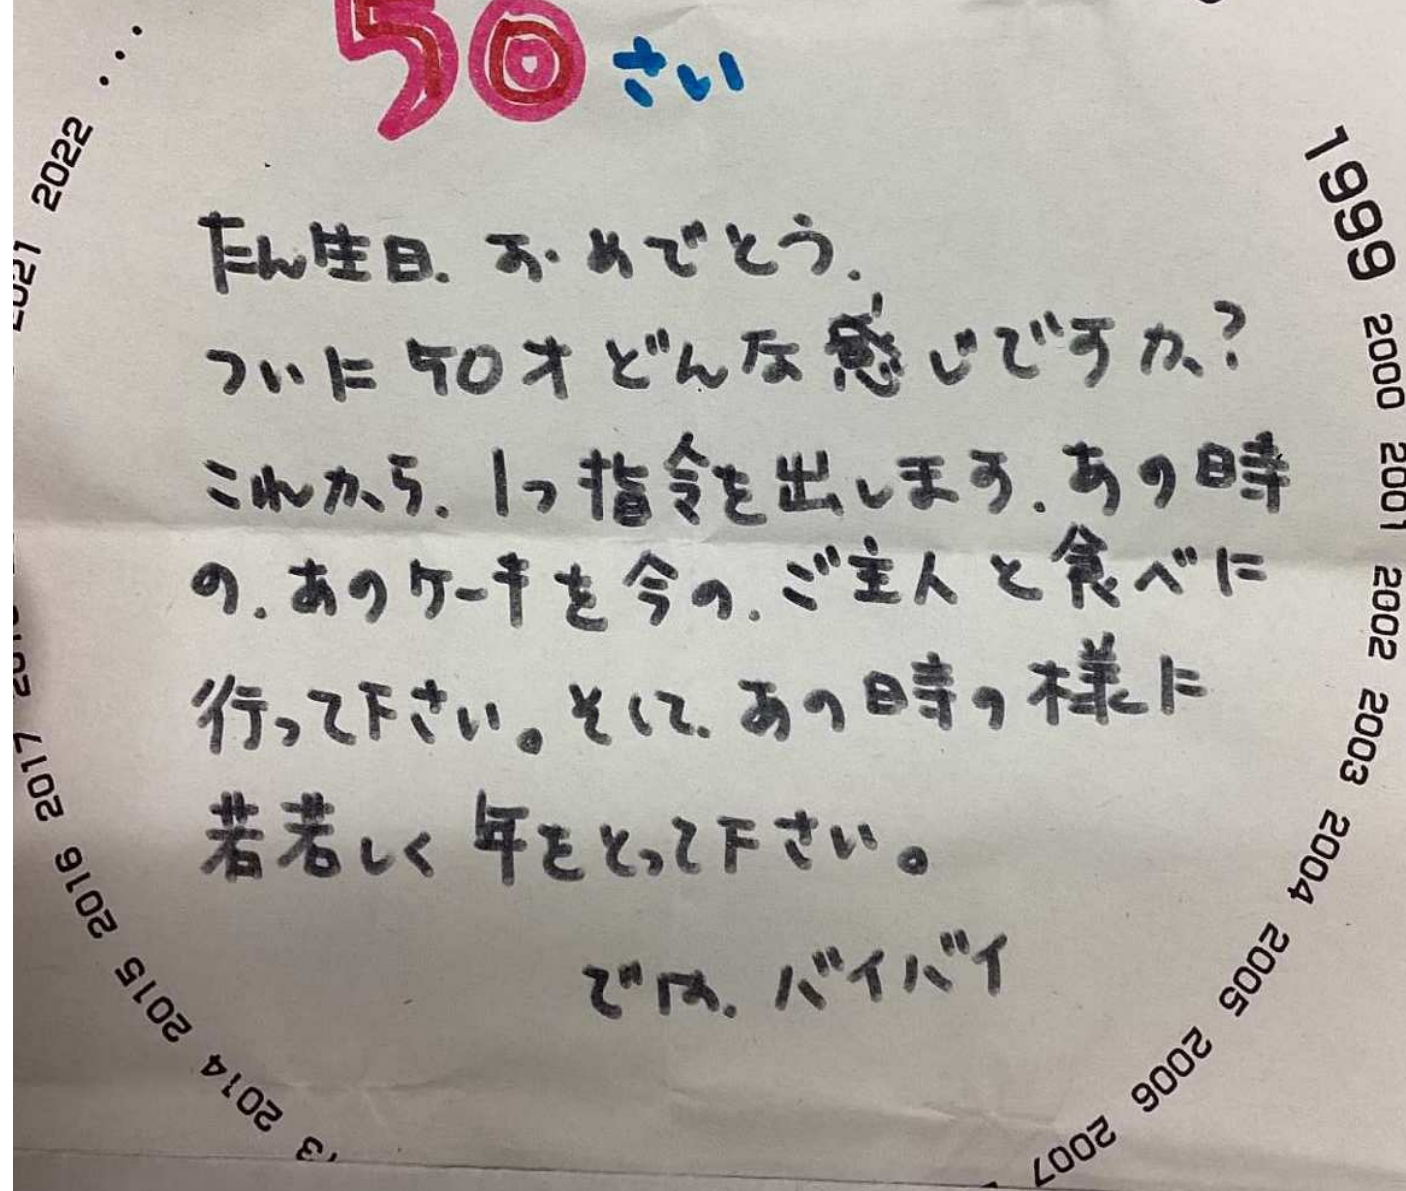 50さい
たん生日.おめでとう.
ついに50才どんな感じですか?
これから.1つ指令を出します.あの時
の.あのケーキを今の.ご主人と食べに
行って下さい。そして.あの時の様に
若若しく年をとって下さい。
では.バイバイ
1999 2000 2001 2002 2003 2004 2005 2006 2007
2014 2015 2016 2017
2021 2022 ...